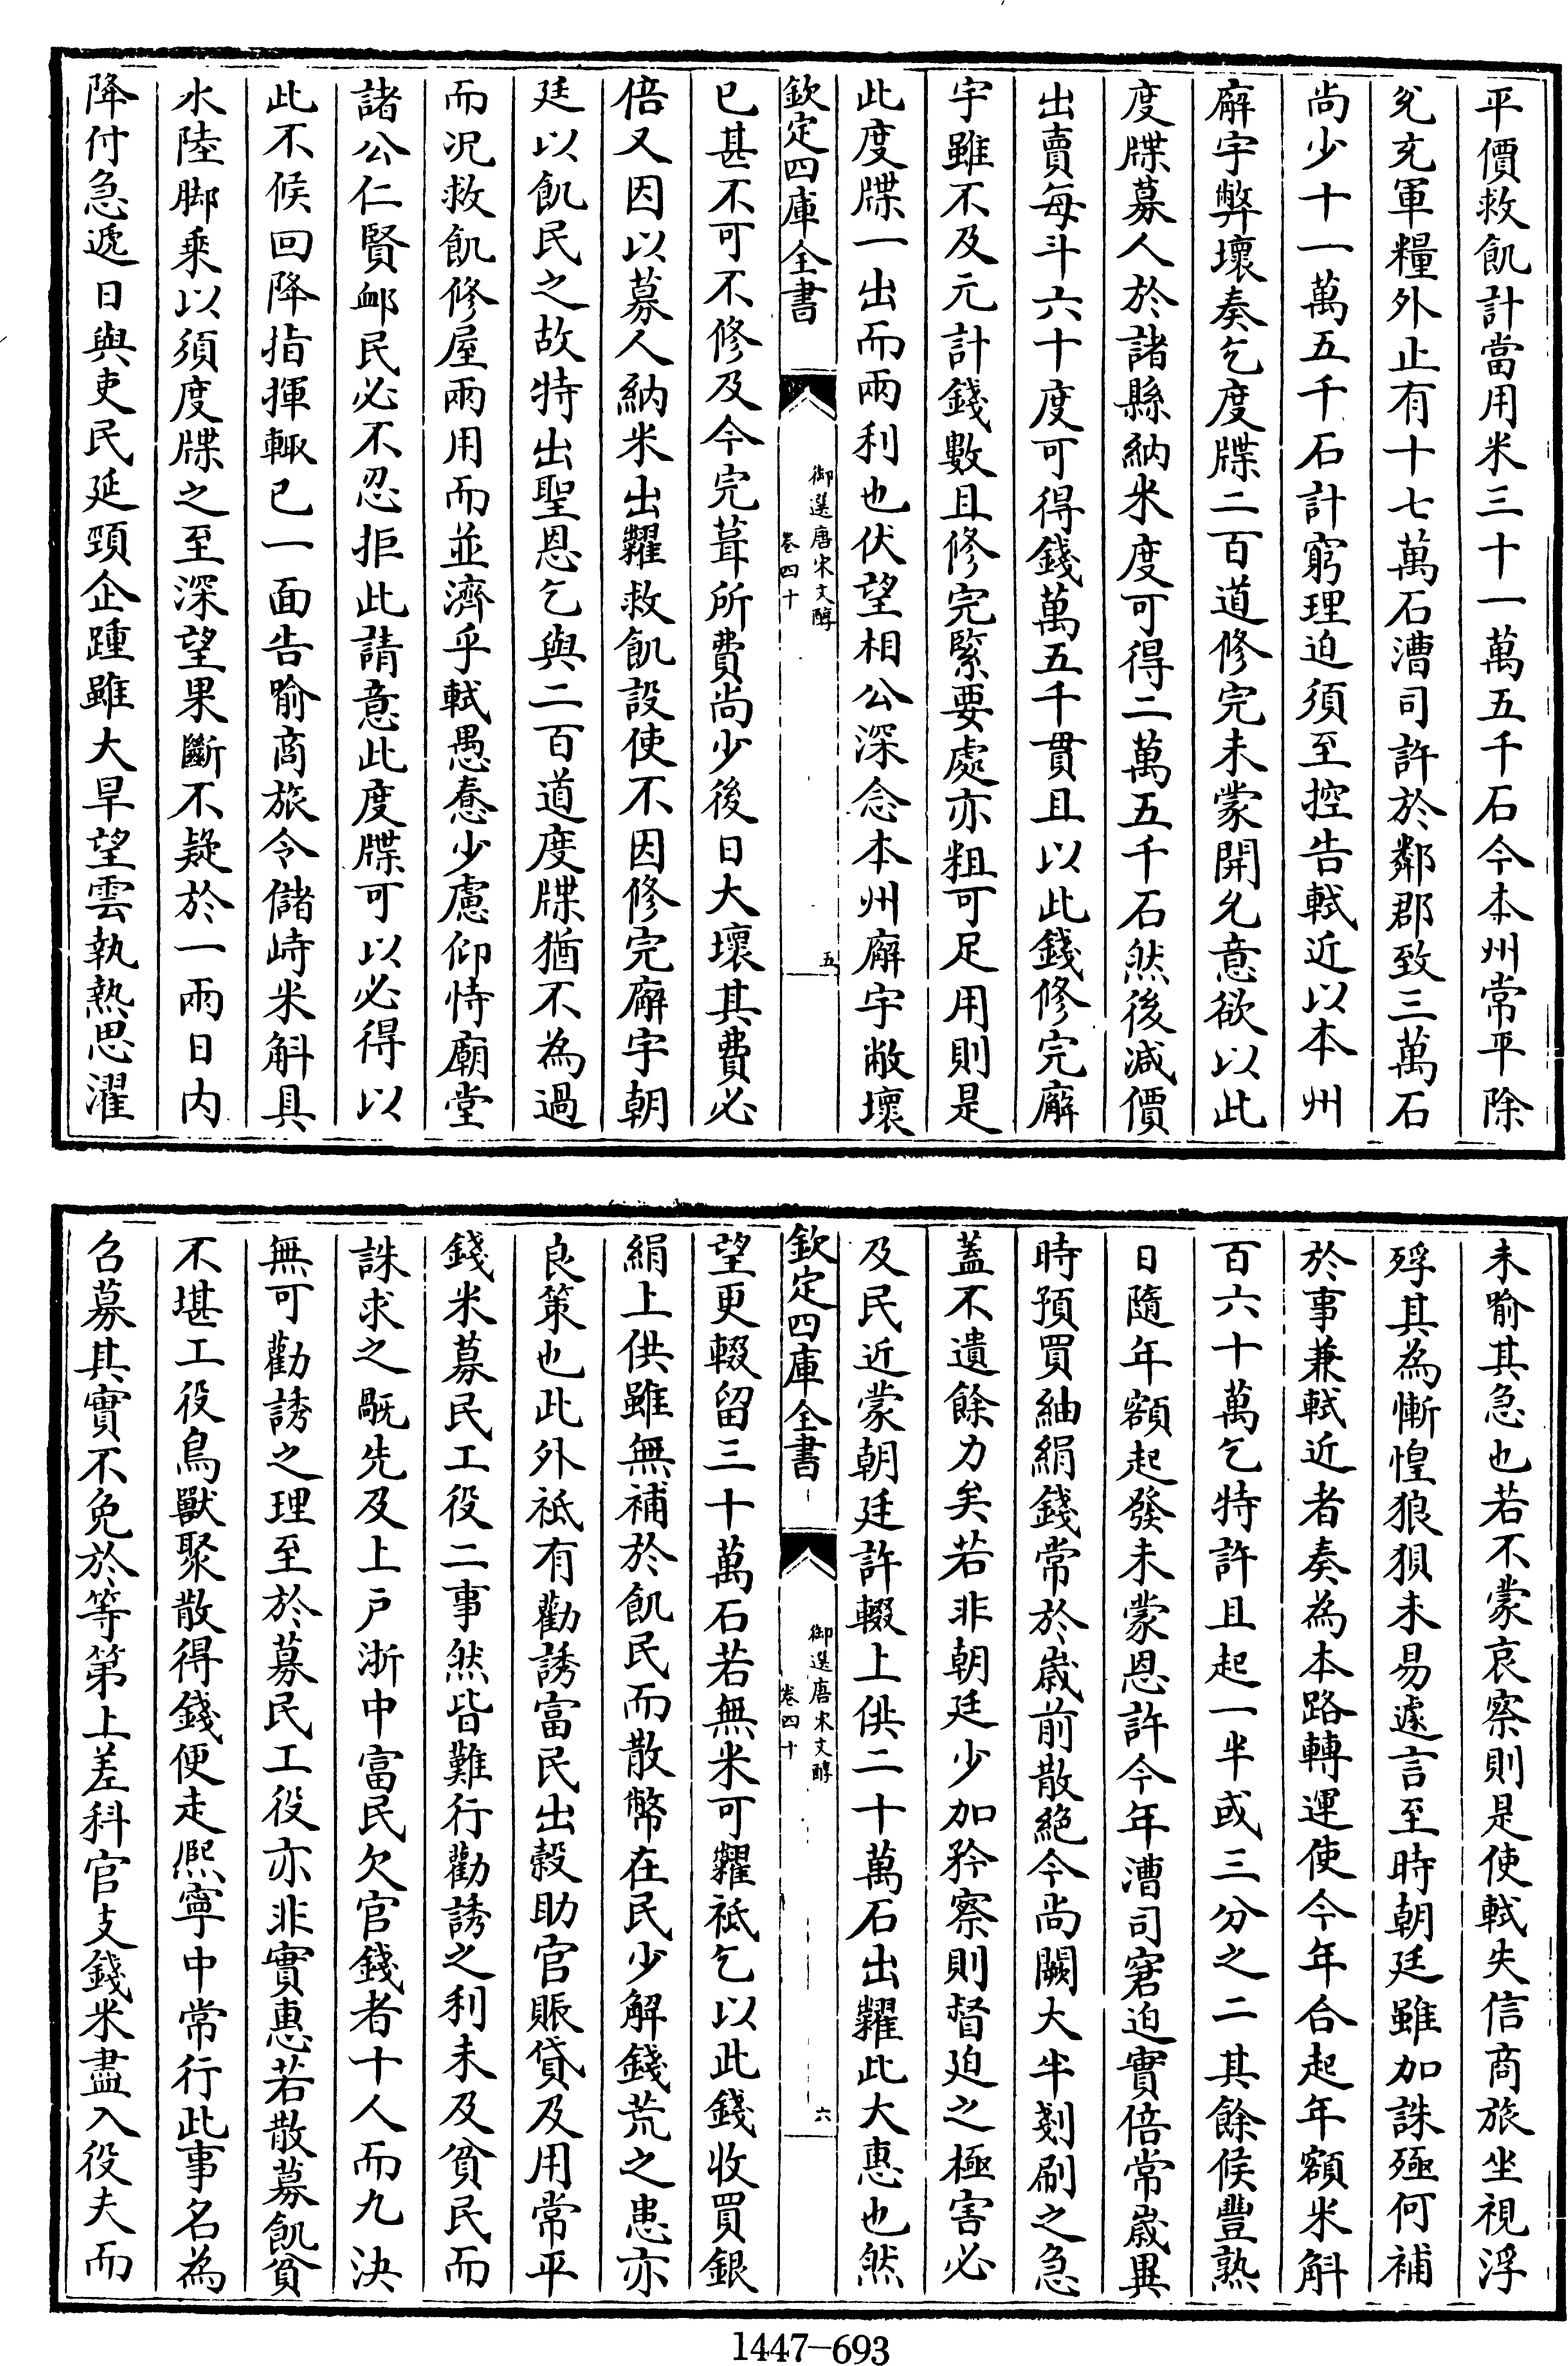 平價救飢計當用米三十一萬五千石今本州常平除
兊充軍糧外止有十七萬石漕司許於鄰郡致三萬石
尚少十一萬五千石計窮理迫須至控告軾近以本州
廨宇弊壞奏乞度牒二百道修完未蒙開允意欲以此
度牒募人於諸縣納米度可得二萬五千石然後减價
出賣每斗六十度可得錢萬五千貫且以此錢修完廨
宇雖不及元計錢數且修完緊要處亦粗可足用則是
此度牒一出而兩利也伏望相公深念本州廨宇敝壞
欽定四庫全書
御選唐宋文醇
卷四十
五
已甚不可不修及今完葺所費尚少後日大壞其費必
倍又因以募人納米出糶救飢設使不因修完廨宇朝
廷以飢民之故特出聖恩乞與二百道度牒猶不為過
而况救飢修屋兩用而並濟乎軾愚惷少慮仰恃廟堂
諸公仁賢䘏民必不忍拒此請意此度牒可以必得以
此不候回降指揮輒已一面告喻商旅令儲峙米斛具
水陸脚乘以須度牒之至深望果斷不疑於一兩日内
降付急遞日與吏民延頸企踵雖大旱望雲執熱思濯
未喻其急也若不蒙哀察則是使軾失信商旅坐視浮
殍其為慚惶狼狽未易遽言至時朝廷雖加誅殛何補
於事兼軾近者奏為本路轉運使今年合起年額米斛
百六十萬乞特許且起一半或三分之二其餘候豐熟
日隨年額起發未蒙恩許今年漕司窘迫實倍常嵗異
時預買紬絹錢常於嵗前散絶今尚闕大半剗刷之急
蓋不遺餘力矣若非朝廷少加矜察則督迫之極害必
及民近蒙朝廷許輟上供二十萬石出糶此大惠也然
欽定四庫全書
御選唐宋文醇
卷四十
六
望更輟留三十萬石若無米可糶祇乞以此錢收買銀
絹上供雖無補於飢民而散幣在民少解錢荒之患亦
良策也此外祇有勸誘富民出糓助官賑貸及用常平
錢米募民工役二事然皆難行勸誘之利未及貧民而
誅求之厩先及上戶浙中富民欠官錢者十人而九決
無可勸誘之理至於募民工役亦非實惠若散募飢貧
不堪工役鳥獸聚散得錢便走熈寧中常行此事名為
召募其實不免於等第上差科官支錢米盡入役夫而
1447-693